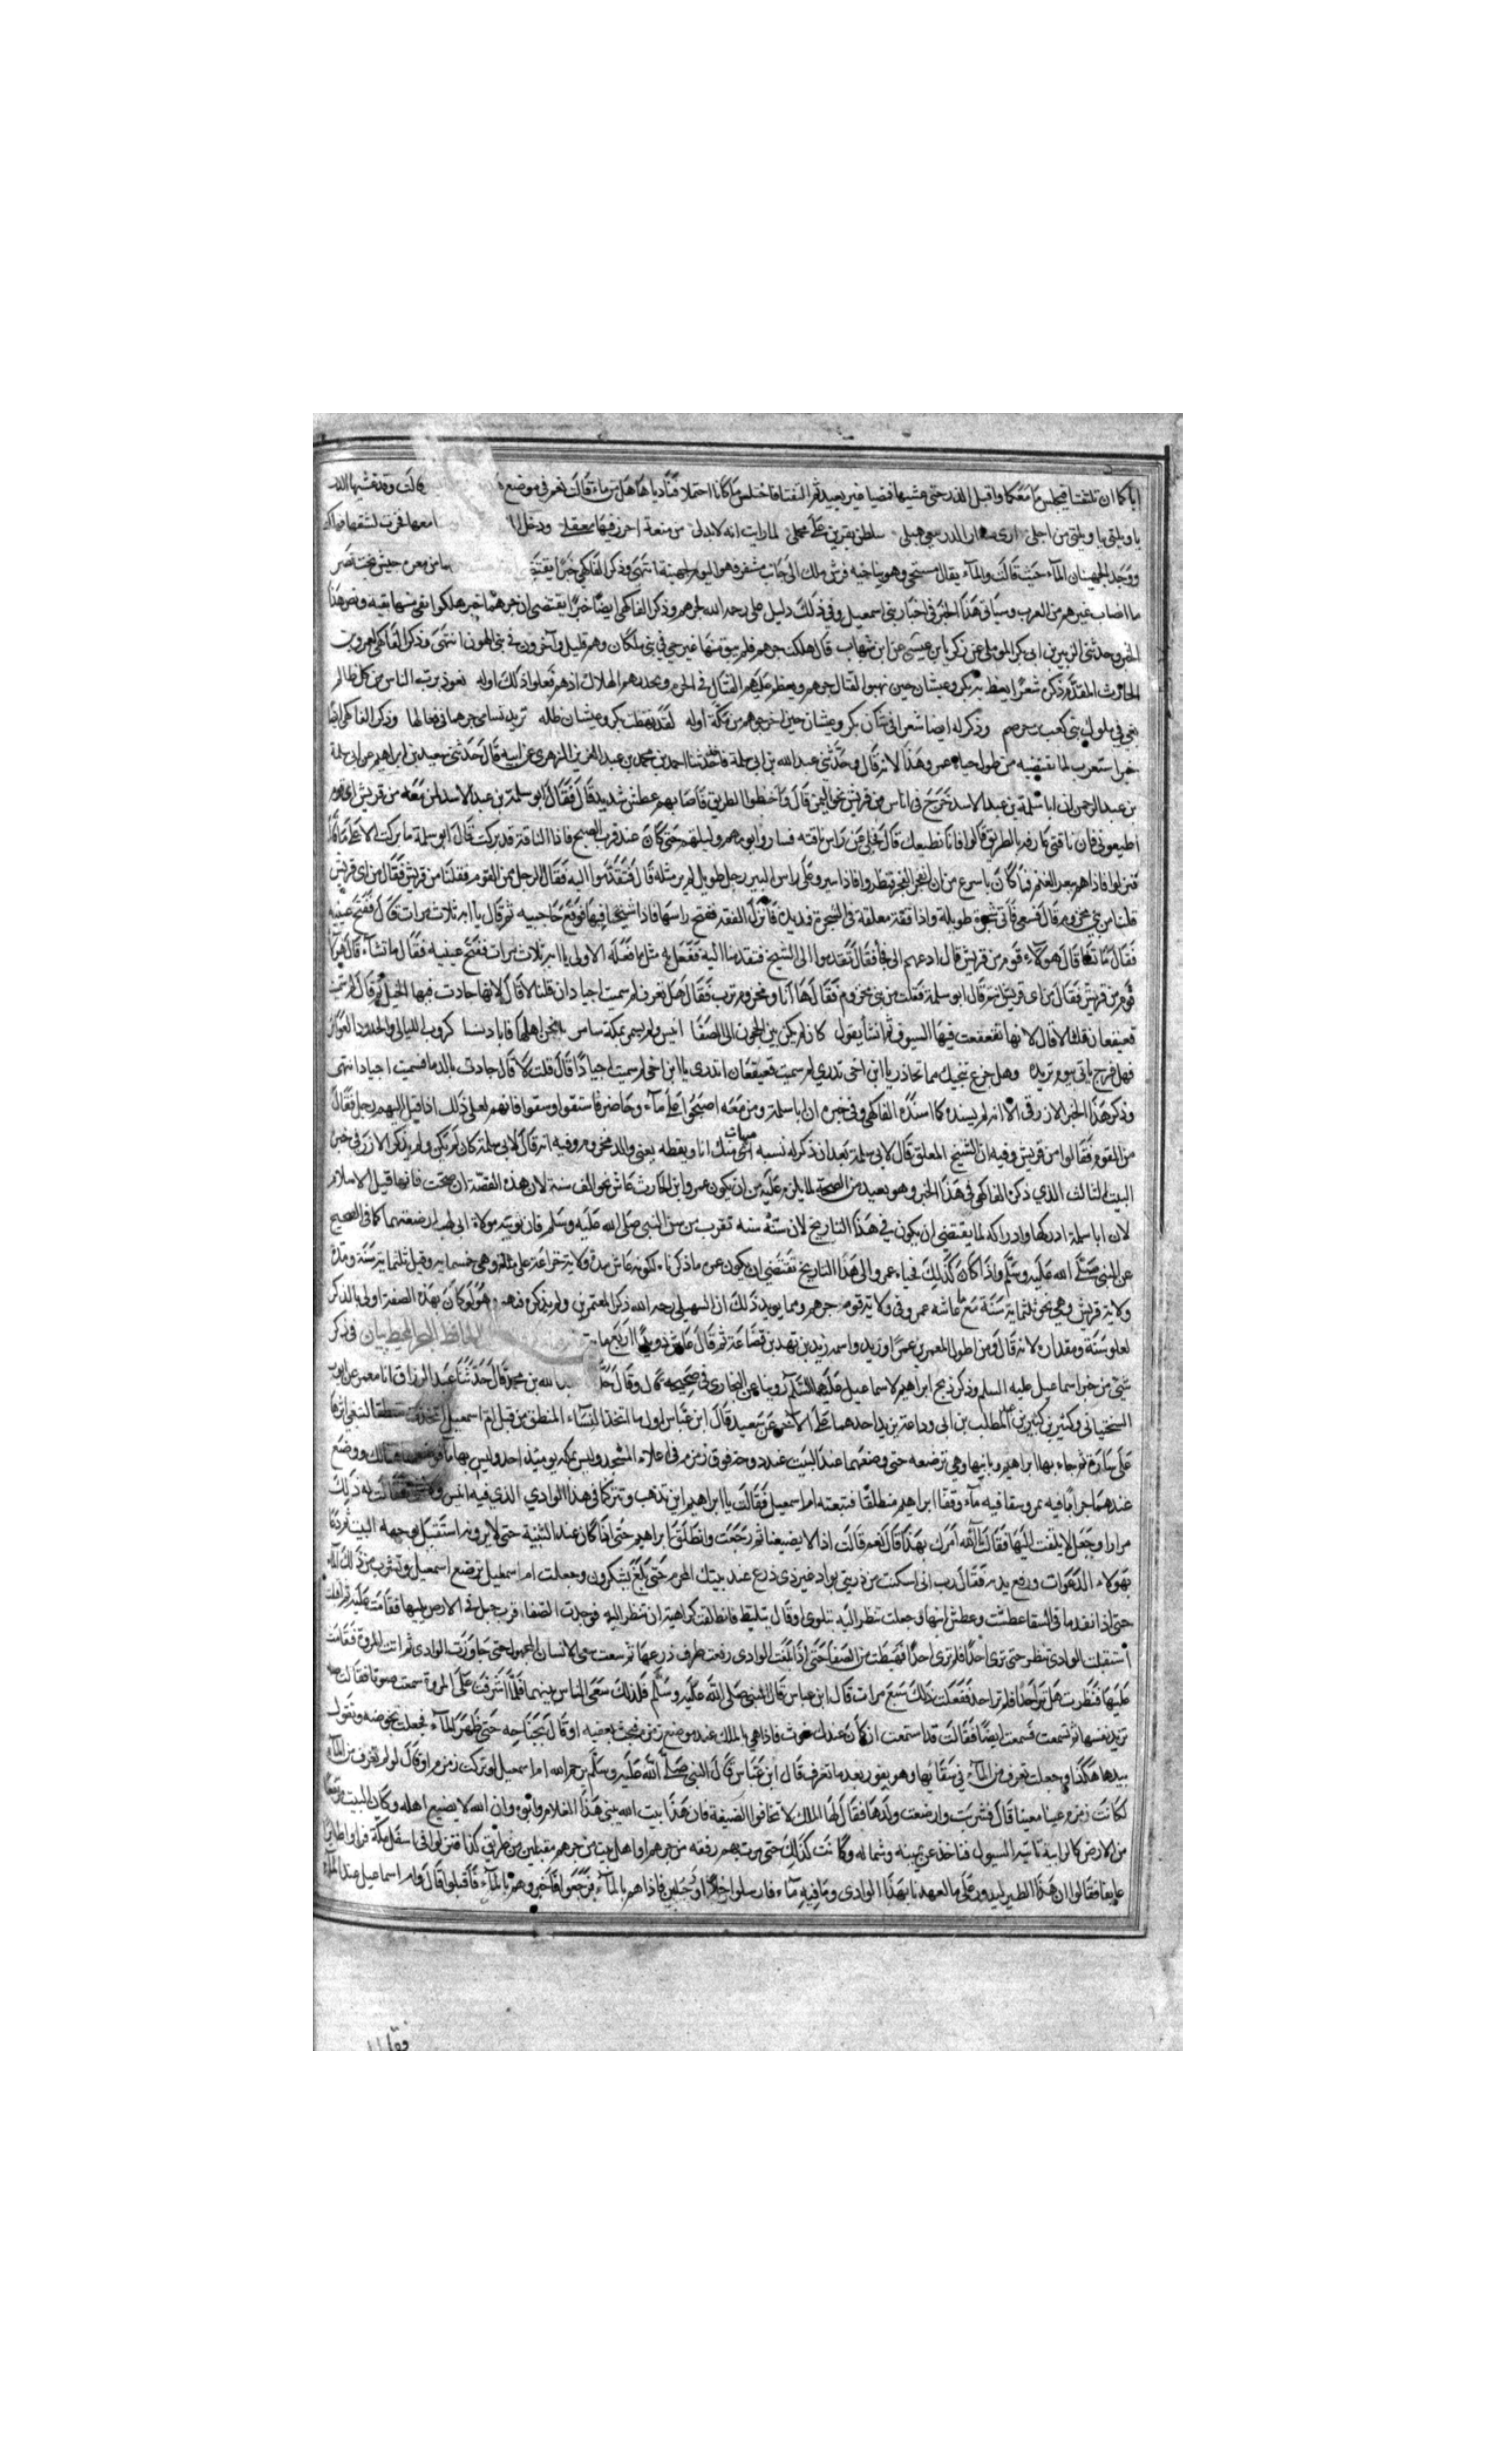 اياكما ان تلتفتا فيختلس ما معكما واقبل الذر حتى مشيها فمضيا غير بعيد ثم التفتا فاختلس ما كانا احتملا فنادياها هل من ماء قالت نعم في موضع قالت وقد غشيها الذر
يا ويلتي يا ويلتي من اجلي سلطن يفرين على محملي لما رايت انه لابد لي من منعة احرز فيها معقلي ودخل
ووجد الجهنيان الماء حيث قالت والماء يقال مسخي وهو بناحية فرش ملك الى جانب مشعر فهو اليوم لجهينة انتهى وذكر الفاكهي خبرا يقتضي
ما اصاب غيرهم من العرب وسياتي هذا الخبر في اخبار بني اسمعيل وفي ذلك دليل على رحمة الله لجرهم وذكر الفاكهي ايضا خبرا يقتضي ان جرهما حين هلكوا بقي منها بقية ونص هذا
الخبر وحدثني الزبير بن ابي بكر الموصلي عن زكريا بن عيسى عن ابن شهاب قال هلكت جرهم فلم يبق منها غير حي في بني ملكان وهم قليل وآخرون في بني الهون انتهى وذكر الفاكهي لعمرو بن
الحارث المقدم ذكره شعرا يعظ به بكر وغبشان حين نهبوا لقتال جرهم ويعظم عليهم القتال في الحرم ويحذرهم الهلاك ان هم فعلوا ذلك اوله نعوذ برب الناس من كل ظالم
بغى في ملوك بني كعب وذكر له ايضا شعرا في شان بكر وغبشان حين اخرجوهم من مكة اوله وذكر الفاكهي ايضا
خبرا يستغرب لما يقتضيه من طول حياة عمرو هذا لانه قال وحدثني عبد الله بن ابي سلمة قال حدثنا احمد بن محمد بن عبد العزيز الزهري عن ابيه قال حدثني سعيد بن ابراهيم عن ابي سلمة
بن عبد الرحمن ان ابا سلمة بن عبد الاسد خرج في اناس من قريش نحو اليمن قال واخطوا الطريق فاصابهم عطش شديد قال فقال ابو سلمة بن عبد الاسد لمن معه من قريش اي قوم
اطيعوني فان ناقتي عارفة بالطريق قالوا فانا نطيعك قال فخلى عن راس ناقته فساروا يومهم وليلتهم حتى كان عند قرب الصبح فاذا الناقة قد بركت قال ابو سلمة ما بركت الا على ماء
فنزلوا فاذا هم ببعر الغنم فما كان باسرع من ان انفجر الفجر فنظروا فاذا بئر وعلى راس البير رجل طويل لم ير مثله قال فتقدموا اليه فقال الرجل ممن القوم فقلنا من قريش فقال من اي قريش
قلنا من بني مخزوم قال فسعى فاتى شجرة طويلة واذا قفة معلقة في الشجرة فمد يده فانزل القفة ففتح راسها فاذا شيخ فيها فرفع حاجبيه ثم قال يا ابه ثلاث مرات قال ففتح عينيه
فقال ما تشا قال هؤلاء قوم من قريش قال ادعهم الي فقال تقدموا الى الشيخ فتقدمنا اليه ففعل به مثل ما فعله الاولى يا ابه ثلاث مرات ففتح عينيه فقال ما تشآء قال هؤلاء
قوم من قريش فقال من اي قريش انتم قال ابو سلمة فقلت من بني مخزوم فقال ها انا ومخزوم ترب فقال هل تعرف لم سميت اجياد ان قلنا لا قال لانها جادت فيها الخيل ثم قال لم سميت
قعيقعان قلنا لا قال لانها تقعقعت فيها السيوف ثم انشأ يقول كان لم يكن بين الحجون الى الصفا انيس ولم يسمر بمكة سامر بلى نحن اهلها فابادنا كرور الليالي والجدود العواثر
فهل فرج ياتي بيوم نريده وهل جزع ينجيك مما تحاذر يا ابن اخي تدري لم سميت قعيقعان اتدري يا ابن اخي لم سميت اجيادا قال قلت لا قال جادت بالدما فسميت اجيادا انتهى
وذكر هذا الخبر الازرقي الا انه لم يسنده كما اسنده الفاكهي وفي خبره ان ابا سلمة ومن معه اصبحوا على ماء وحاضر فاستقوا وسقوا فانهم لعلى ذلك اذ اقبل اليهم رجل فقال
من القوم فقالوا من قريش وفيه ان الشيخ المعلق قال لابي سلمة بعد ان ذكر له نسبه انا ويقظة يعني والد مخزوم وفيه انه قال لابي سلمة كان لم يكن ولم يذكر الازرقي في خبره
البيت الثالث الذي ذكره الفاكهي في هذا الخبر وهو بعيد من الصحة لما يلزم عليه من ان يكون عمرو ابن الحارث عاش نحو الف سنة لان هذه القصة ان صحت فانها قبل الاسلام
لان ابا سلمة ادركها وادراكه لما يقتضي ان يكون في هذا التاريخ لان سنه تقرب من سن النبي صلى الله عليه وسلم فان ثويبة مولاة ابي لهب ارضعتهما كما في الصحيح
عن النبي صلى الله عليه وسلم واذا كان كذلك فحياة عمرو الى هذا التاريخ تقتضي ان يكون عمره ما ذكرناه لكونه عاش مدة ولاية خزاعة على مكة وهي خمسماية وقيل ثلثماية سنة ومدة
ولاية قريش وهي نحو ثلثماية سنة مع ما عاشه عمرو في ولاية قومه جرهم ومما يويد ذلك ان السهيلي رحمه الله ذكر المعمرين ولم يذكره فيهم ولو كان بهذه الصفة اولى بالذكر
لعلو سنه ومقداره لانه قال ومن اطول المعمرين عمرا زيد واسمه زيد بن نهد بن قضاعة ثم قال عاش دويد اربع ماية في ذكر
شيء من خبر اسماعيل عليه السلام وذكر ذبح ابراهيم لاسماعيل عليهما السلام روينا عن البخاري في صحيحه قال وقال الله بن محمد قال حدثنا عبد الرزاق انا معمر عن ايوب
السختياني وكثير بن كثير بن المطلب بن ابي وداعة يزيد احدهما على الآخر عن سعيد قال ابن عباس اول ما اتخذ النسآء المنطق من قبل ام اسمعيل اتخذت منطقا لتعفي اثرها
على سارة ثم جاء بها ابراهيم وبابنها وهي ترضعه حتى وضعهما عند البيت عند دوحة فوق زمزم في اعلاء المسجد وليس بمكة يوميذ احد وليس بها ماء هنالك ووضع
عندهما جرابا فيه تمر وسقا فيه مآء وقفا ابراهيم منطلقا فتبعته ام اسمعيل فقالت يا ابراهيم اين تذهب وتتركنا في هذا الوادي الذي فيه انس فقالت له ذلك
مرارا وجعل لا يلتفت اليها فقالت آلله امرك بهذا قال نعم قالت اذا لا يضيعنا ثم رجعت وانطلق ابراهيم حتى اذا كان عند الثنية حتى لا يرونه استقبل بوجهه البيت ثم دعا
بهؤلاء الدعوات ورفع يديه فقال رب اني اسكنت من ذريتي بواد غير ذي زرع عند بيتك المحرم حتى بلغ يشكرون وجعلت ام اسمعيل ترضع اسمعيل وتشرب من ذلك الماء
حتى اذا نفد ما في السقا عطشت وعطش ابنها وجعلت تنظر اليه يتلوى او قال يتلبط فانطلقت كراهية ان تنظر اليه فوجدت الصفا اقرب جبل في الارض يليها فقامت عليه ثم
استقبلت الوادي تنظر حتى ترى احدا فلم ترى احدا فهبطت من الصفا حتى اذا بلغت الوادي رفعت طرف ذرعها ثم سعت سعي الانسان المجهود حتى جاوزت الوادي ثم اتت المروة فقامت
عليها فنظرت هل ترى احدا فلم تر احدا ففعلت ذلك سبع مرات قال ابن عباس قال النبي صلى الله عليه وسلم فلذلك سعى الناس بينهما فلما اشرفت على المروة سمعت صوتا فقالت صه
تريد نفسها ثم تسمعت فسمعت ايضا فقالت قد استمعت ان كان عندك غوث فاذا هي بالملك عند موضع زمزم فبحث بعقبه او قال بجناحه حتى ظهر المآء فجعلت تحوضه وتقول
بيدها هكذا وجعلت تغرف من المآء في سقائها وهو يفور بعد ما تغرف قال ابن عباس قال النبي صلى الله عليه وسلم يرحم الله ام اسمعيل لو تركت زمزم او قال لو لم تغرف من المآء
لكانت زمزم عينا معينا قال فشربت وارضعت ولدها فقال لها الملك لا تخافوا الضيعة فان هذا بيت الله يبني هذا الغلام وابوه وان الله لا يضيع اهله وكان البيت مرتفعا
من الارض كالرابية تاتيه السيول فتاخذ عن يمينه وشماله وكانت كذلك حتى مرت بهم رفقه من جرهم او اهل بيت من جرهم مقبلين من طريق كدا فنزلوا في اسفل مكة فراوا طايرا
عايفا فقالوا ان هذا الطير ليدور على ما لعهدنا بهذا الوادي وما فيه مآء فارسلوا جريا او جريين فاذا هم بالمآء فرجعوا فاخبروهم بالمآء فاقبلوا قال وام اسماعيل عند المآء